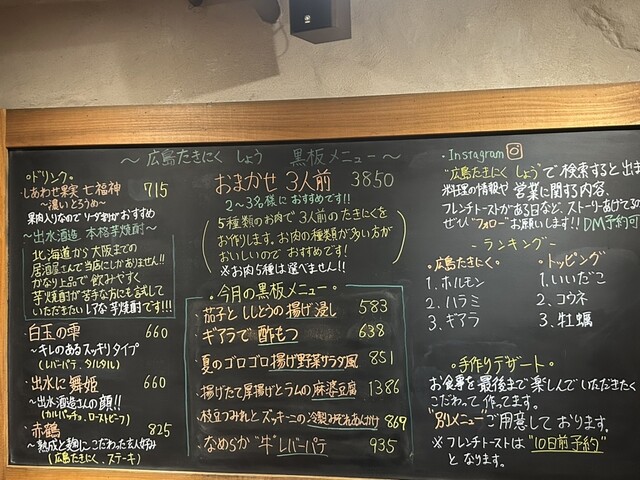 ～広島たきにく しょう 黒板メニュー～
◦ドリンク◦
・しあわせ果実 七福神 715
～濃いとろうめ～
果肉入りなので ソーダ割がおすすめ
～出水酒造 本格芋焼酎～
北海道から大阪までの
居酒屋さんで当店にしかありません!!
かなり上品で飲みやすく
芋焼酎が苦手な方にも試して
いただきたいレアな芋焼酎です!!!
・白玉の雫 660
～キレのあるスッキリタイプ
(レバーパテ、タルタル)
・出水に舞姫 660
～出水酒造さんの顔!!
(カルパッチョ、ローストビーフ)
・赤鶴 825
～熟成と麹にこだわった玄人好み
(広島たきにく、ステーキ)
おまかせ 3人前 3850
2～3名様におすすめです!!
5種類のお肉で3人前のたきにくを
お作りします。お肉の種類が多い方が
おいしいのでおすすめです!
※お肉5種は選べません!!
◦今月の黒板メニュー◦
・茄子とししとうの揚げ浸し 583
・ギアラで酢もつ 638
・夏のゴロゴロ揚げ野菜サラダ風 851
・揚げたて厚揚げとラムの麻婆豆腐 1386
・枝豆つみれとズッキーニの冷製みぞれあんかけ 869
・なめらか"牛"レバーパテ 935
・Instagram
"広島たきにく しょう"で検索すると出ま
料理の情報や営業に関する内容、
フレンチトーストがある日など、ストーリーあげてる
ぜひ"フォロー"お願いします!! DM予約可
-ランキング-
◦広島たきにく◦
1. ホルモン
2. ハラミ
3. ギアラ
◦トッピング◦
1. いいだこ
2. コウネ
3. 牡蠣
◦手作りデザート◦
お食事を最後まで楽しんでいただきたく
こだわって作ってます。
"別メニュー"ご用意しております。
※フレンチトーストは"10日前予約"
となります。